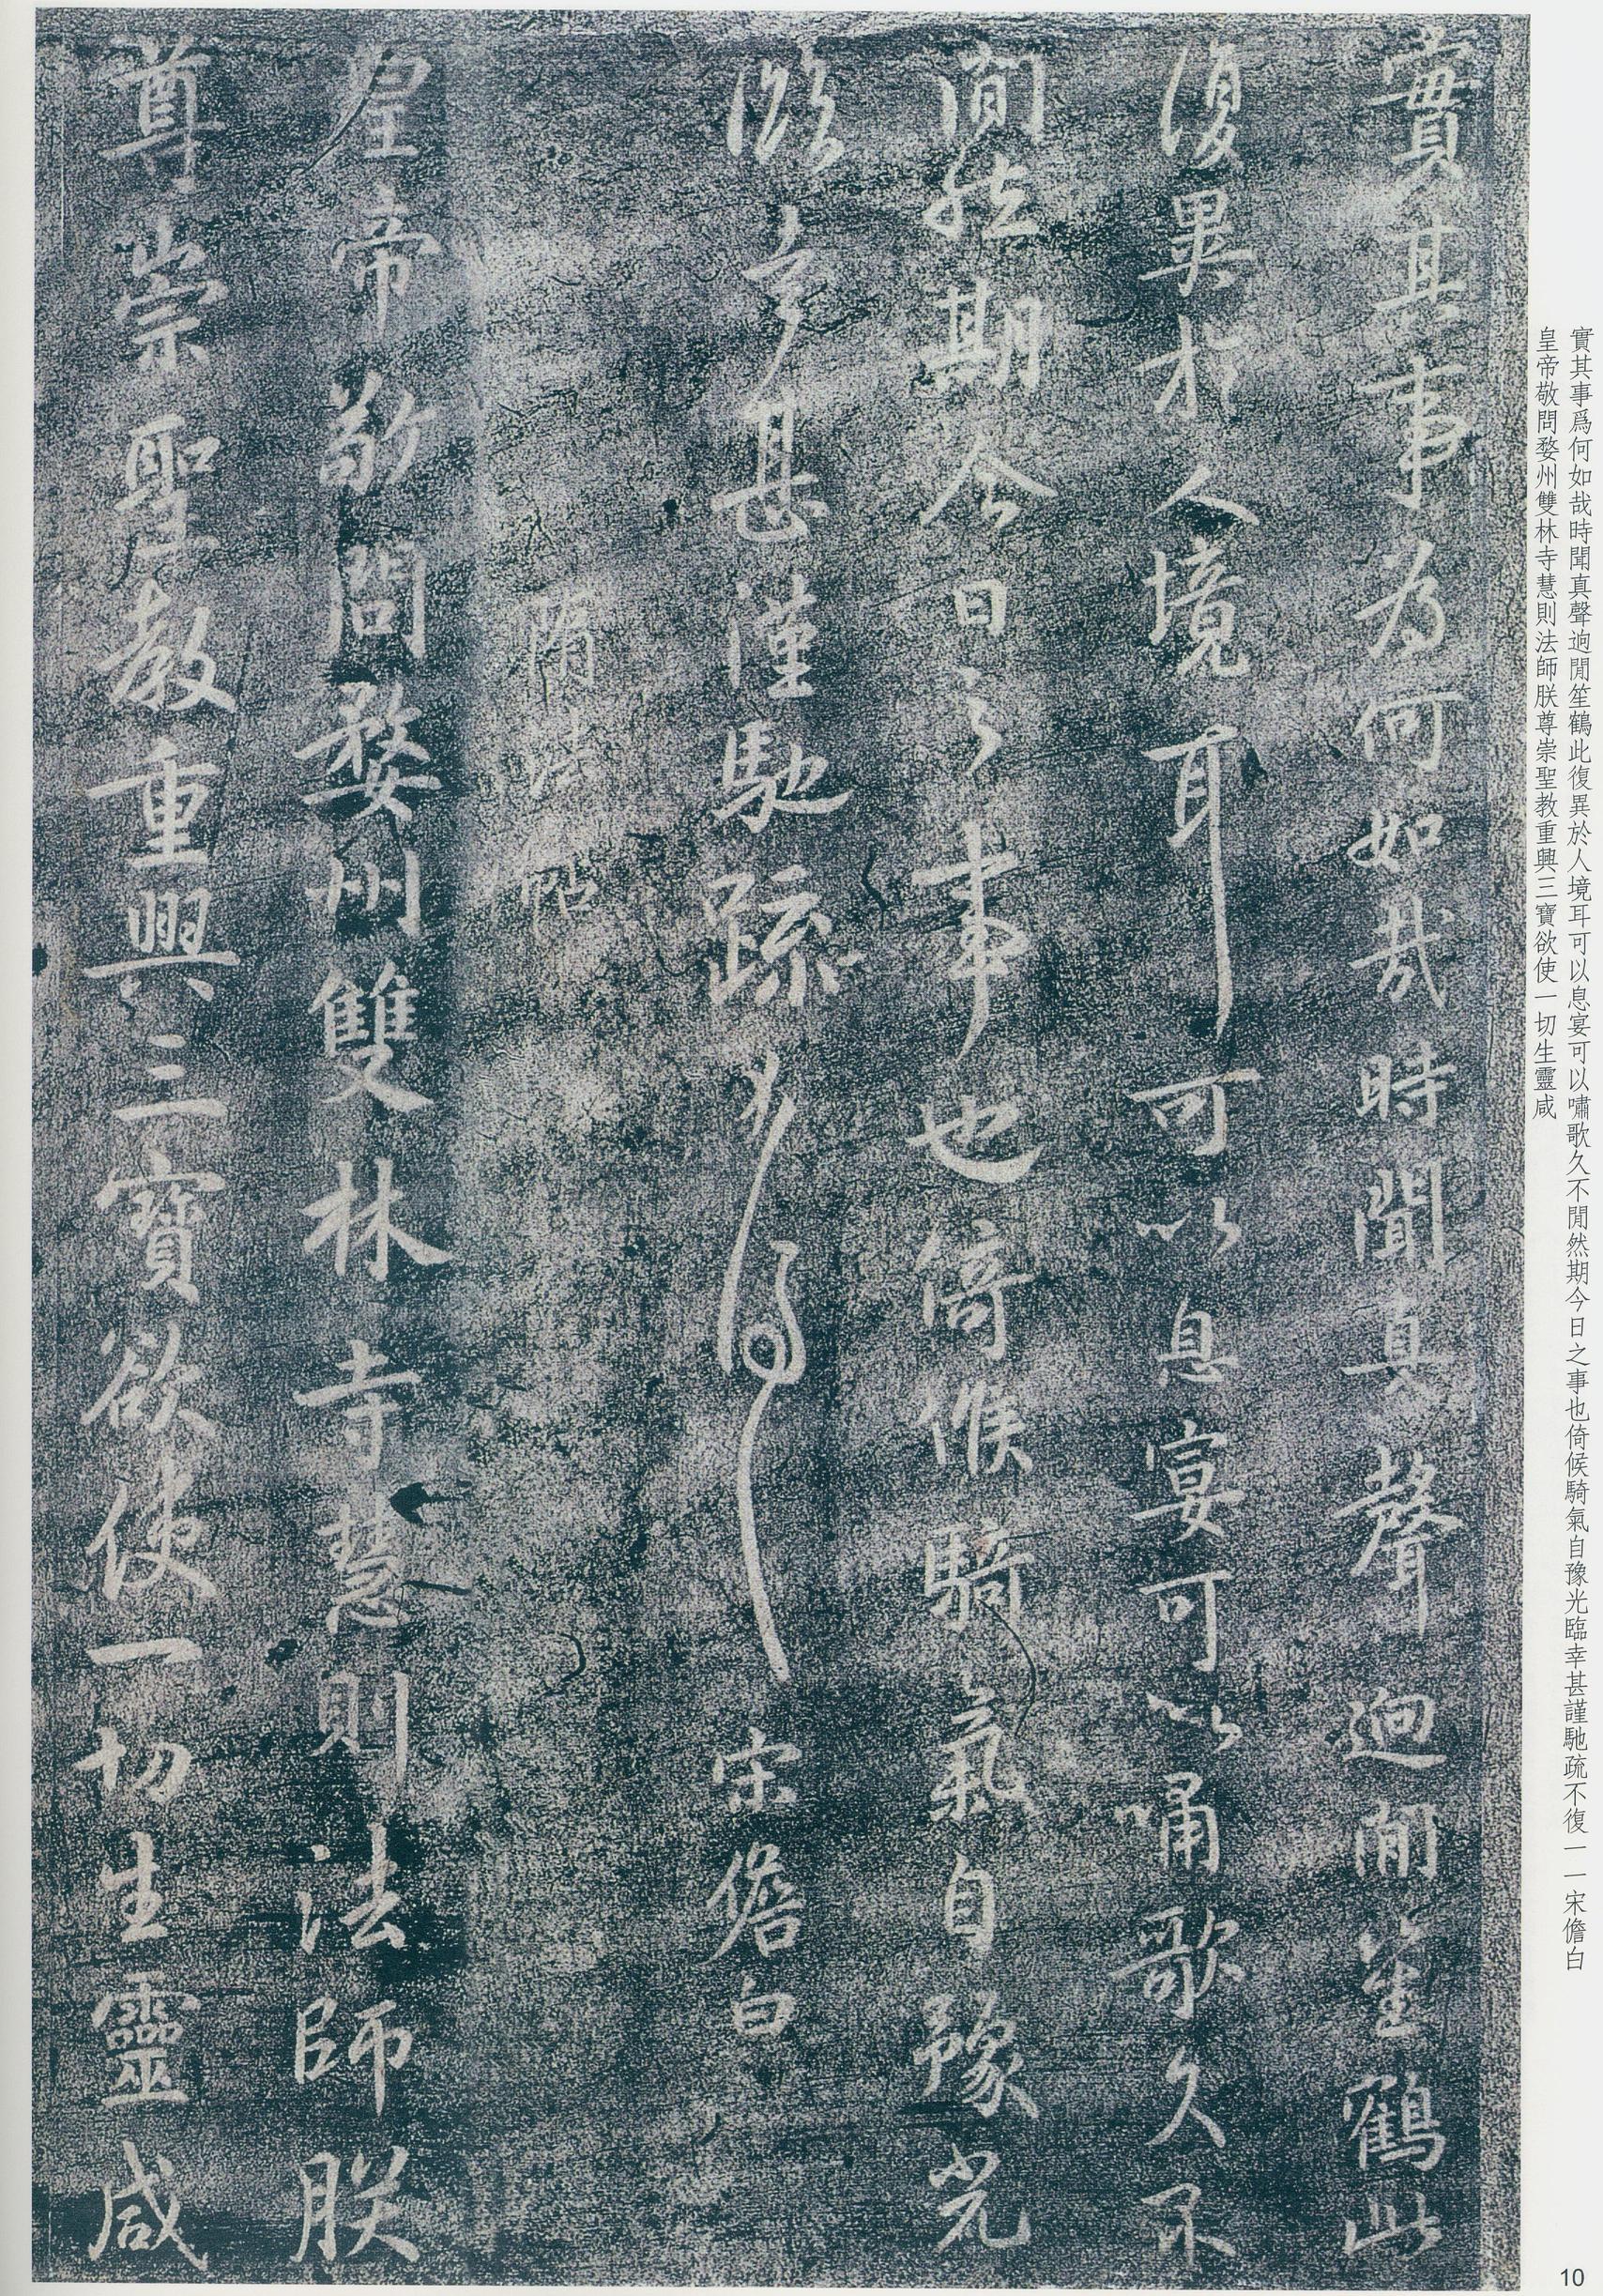 實其事爲何如哉時聞真聲逈閒笙鶴此復異於人境耳可以息宴可以嘯歌久不閒然期今日之事也倚候騎氣自豫光臨幸甚謹馳疏不復一一宋儋白
皇帝敬問婺州雙林寺慧則法師朕尊崇聖教重興三寶欲使一切生靈咸
實其事為何如哉時聞真聲逈閒笙鶴此
復異於人境耳可以息宴可以嘯歌久不
閒然期今日之事也倚候騎氣自豫光
臨幸甚謹馳疏不復一一宋儋白
隋法帖
皇帝敬問婺州雙林寺慧則法師朕
尊崇聖教重興三寶欲使一切生靈咸
10